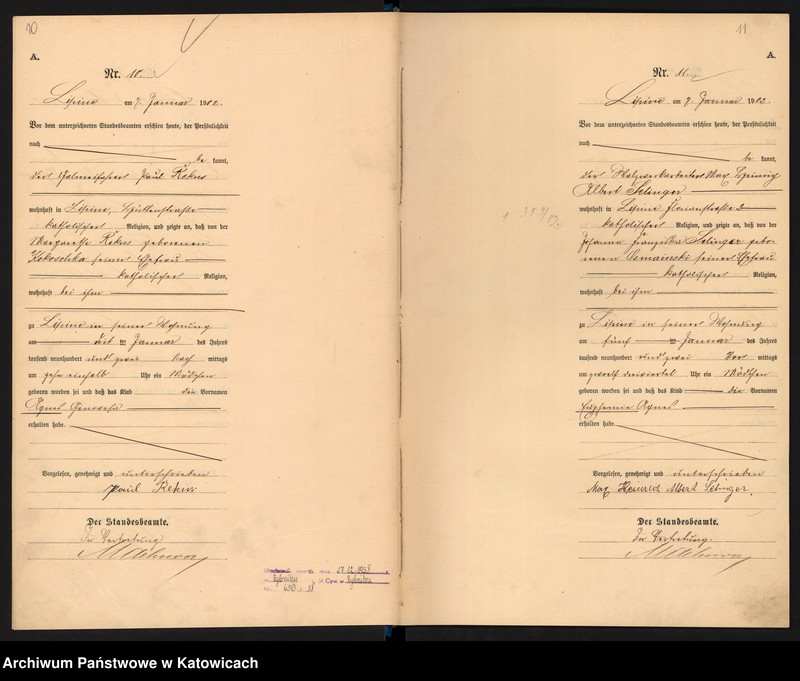 10
A.
Nr. 10.
Lipine am 7. Januar 1902.
Vor dem unterzeichneten Standesbeamten erschien heute, der Persönlichkeit
nach
be kannt,
der Galmeischer Paul Rekus
wohnhaft in Lipine, Hüttenstraße
katholischer Religion, und zeigte an, daß von der
Margarethe Rekus geborenen
Kokoschka seiner Ehefrau
katholischer Religion,
wohnhaft bei ihm
zu Lipine in seiner Wohnung
am Januar des Jahres
tausend neunhundert und zwei Nach mittags
um zehn einhalb Uhr ein Mädchen
geboren worden sei und daß das Kind die Vornamen
Agnes
erhalten habe.
Vorgelesen, genehmigt und unterschrieben
Paul Rekus
Der Standesbeamte.
In Vertretung
27.02.1938
Rybniku
Rybniku
11
A.
Nr.
Lipine am 7. Januar 190
Vor dem unterzeichneten Standesbeamten erschien heute, der Persönlichkeit
nach
be kannt,
der Walzwerkarbeiter Max Heinrich
Albert Selinger
wohnhaft in Lipine Florianstraße 2
katholischer Religion, und zeigte an, daß von der
Johanna Franziska Selinger gebo-
renen seiner Ehefrau
katholischer Religion,
wohnhaft bei ihm
zu Lipine in seiner Wohnung
am fünf Januar des Jahres
tausend neunhundert und zwei Vor mittags
um zwölf dreiviertel Uhr ein Mädchen
geboren worden sei und daß das Kind die Vornamen
Euphemie Agnes
erhalten habe.
Vorgelesen, genehmigt und unterschrieben
Max Heinrich Albert Selinger.
Der Standesbeamte.
In Vertretung.
Archiwum Państwowe w Katowicach